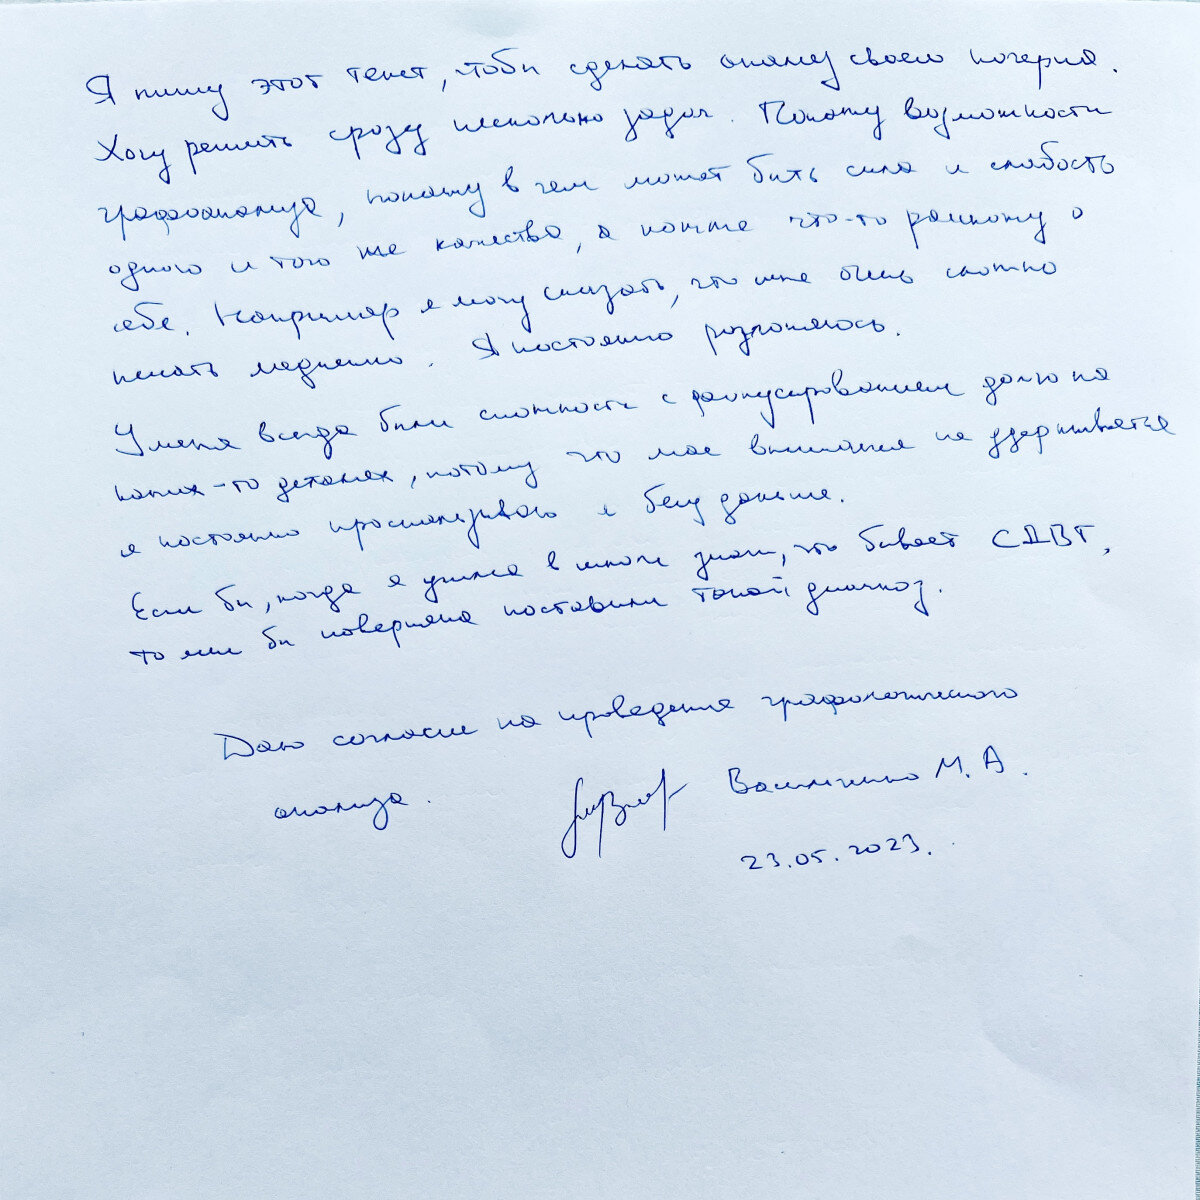 Я пишу этот текст, чтобы сделать анализ своего почерка.
Хочу решить сразу несколько задач. Покажу возможности
графоанализа, покажу в чем может быть сила и слабость
одного и того же качества, а также что-то расскажу о
себе. Например я могу сказать, что мне очень сложно
писать медленно. Я постоянно разгоняюсь.
У меня всегда были сложности с фокусированием долго на
каких-то деталях, потому что мое внимание не удерживается
я постоянно проскальзываю и бегу дальше.
Если бы, когда я училась в школе знали, что бывает СДВГ,
то мне бы наверняка поставили такой диагноз.
Даю согласие на проведение графологического
анализа.
М. А.
23.05.2023.